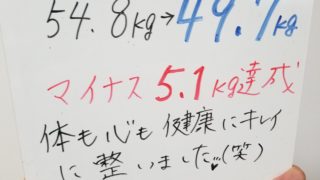 54.8kg→49.7kg
マイナス5.1kg達成
体も心も健康にキレイ
に整いました(笑)